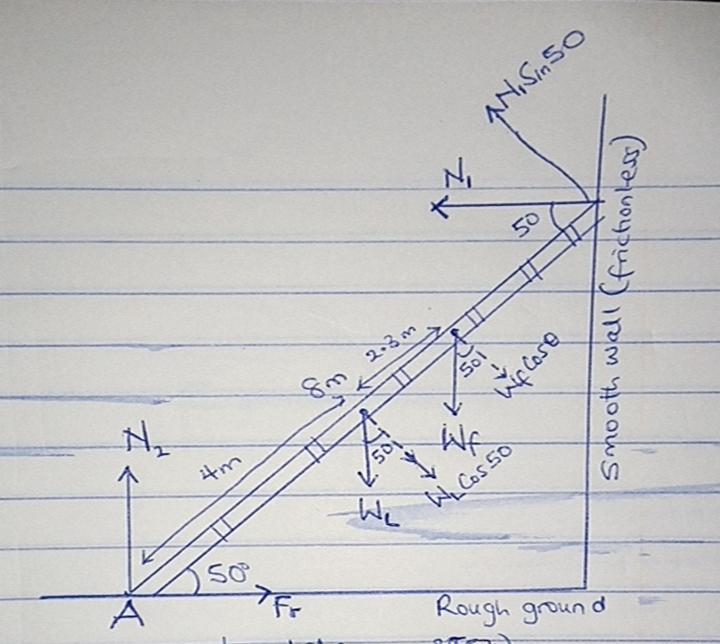 N₁Sin50
N₁
50
Smooth wall (frictionless)
2.3m
8m
50
WfCosθ
Wf
N₂
4m
50
WLCos50
WL
50°
A
Fr
Rough ground